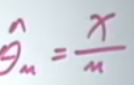 θ̂ₙ = X/n